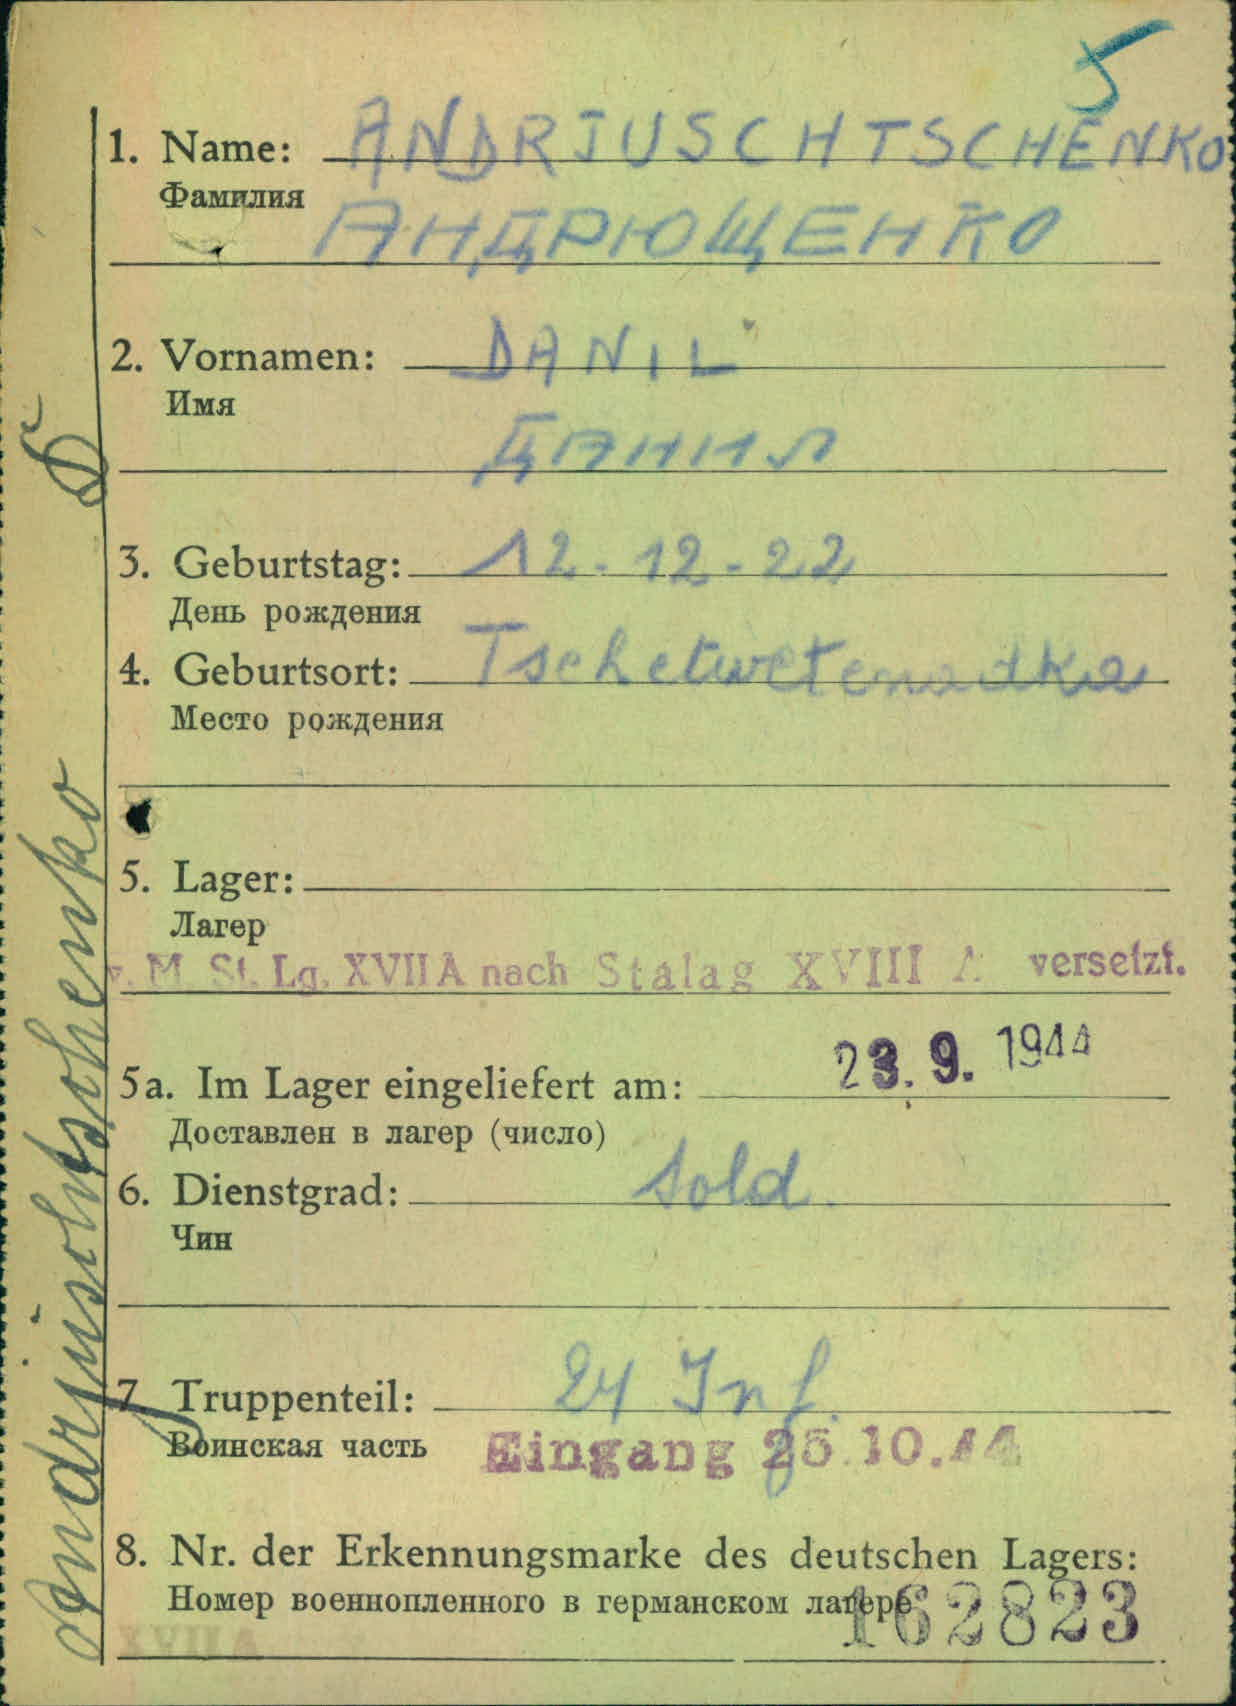 5
1. Name: ANDRJUSCHTSCHENKO
Фамилия
АНДРЮЩЕНКО
2. Vornamen: DANIL
Имя
ДАНИЛ
3. Geburtstag: 12.12.22
День рождения
4. Geburtsort: Tschetwetenadka
Место рождения
5. Lager:
Лагер
v. M. St. Lg. XVII A nach Stalag XVIII A versetzt.
5a. Im Lager eingeliefert am: 23. 9. 1944
Доставлен в лагер (число)
6. Dienstgrad: Sold.
Чин
7. Truppenteil: 24 Inf.
Воинская часть Eingang 25.10.44
8. Nr. der Erkennungsmarke des deutschen Lagers:
Номер военнопленного в германском лагере
XVII A 162823
Andrjuschtschenko D